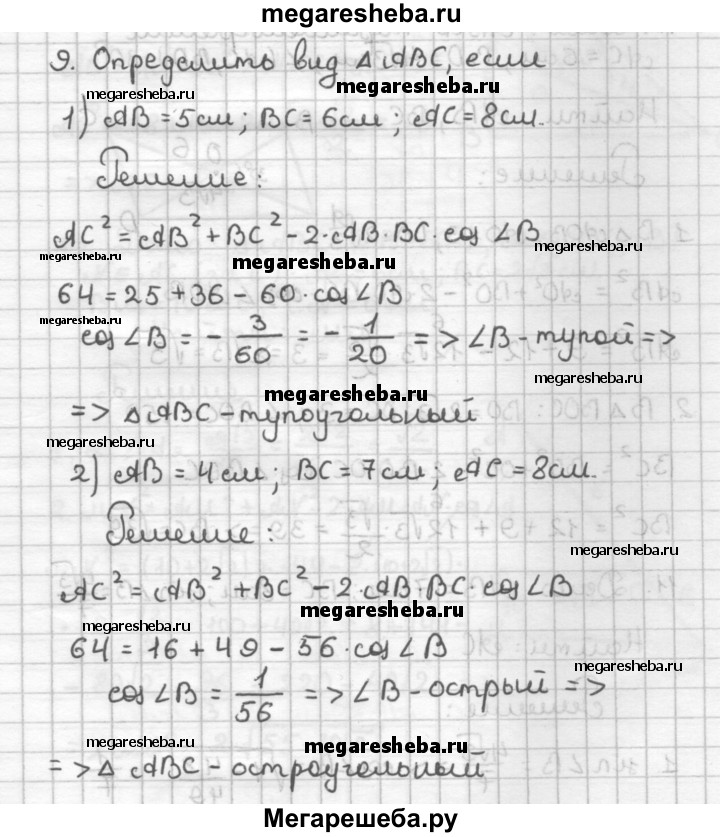 megaresheba.ru
9. Определить вид △ABC, если
megaresheba.ru megaresheba.ru
1) AB = 5см; BC = 6см; AC = 8см.
Решение:
AC² = AB² + BC² - 2·AB·BC·cos∠B
megaresheba.ru megaresheba.ru megaresheba.ru
64 = 25 + 36 - 60·cos∠B
megaresheba.ru
cos∠B = - 3/60 = - 1/20 => ∠B - тупой =>
megaresheba.ru megaresheba.ru
=> △ABC - тупоугольный
megaresheba.ru
2) AB = 4см; BC = 7см; AC = 8см.
Решение:
megaresheba.ru
AC² = AB² + BC² - 2·AB·BC·cos∠B
megaresheba.ru megaresheba.ru
64 = 16 + 49 - 56·cos∠B
megaresheba.ru
cos∠B = 1/56 => ∠B - острый =>
megaresheba.ru megaresheba.ru
=> △ABC - остроугольный
Мегарешеба.ру